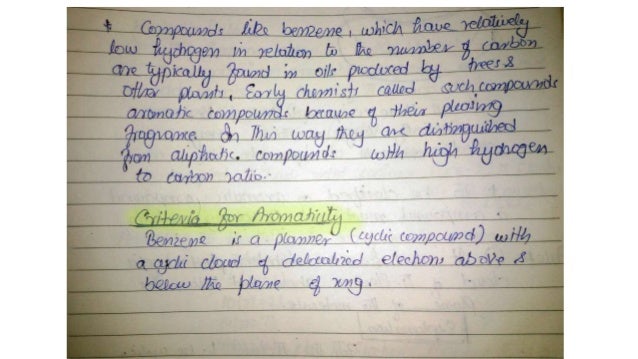 * Compounds like benzene, which have relatively
low hydrogen in relation to the number of carbon
are typically found in oils produced by trees &
other plants. Early chemists called such compounds
aromatic compounds because of their pleasing
fragrance. In This way they are distinguished
from aliphatic. compounds with high hydrogen
to carbon ratio.
Criteria for Aromaticity
Benzene is a planner (cyclic compound) with
a cyclic cloud of delocalized electrons above &
below the plane of ring.